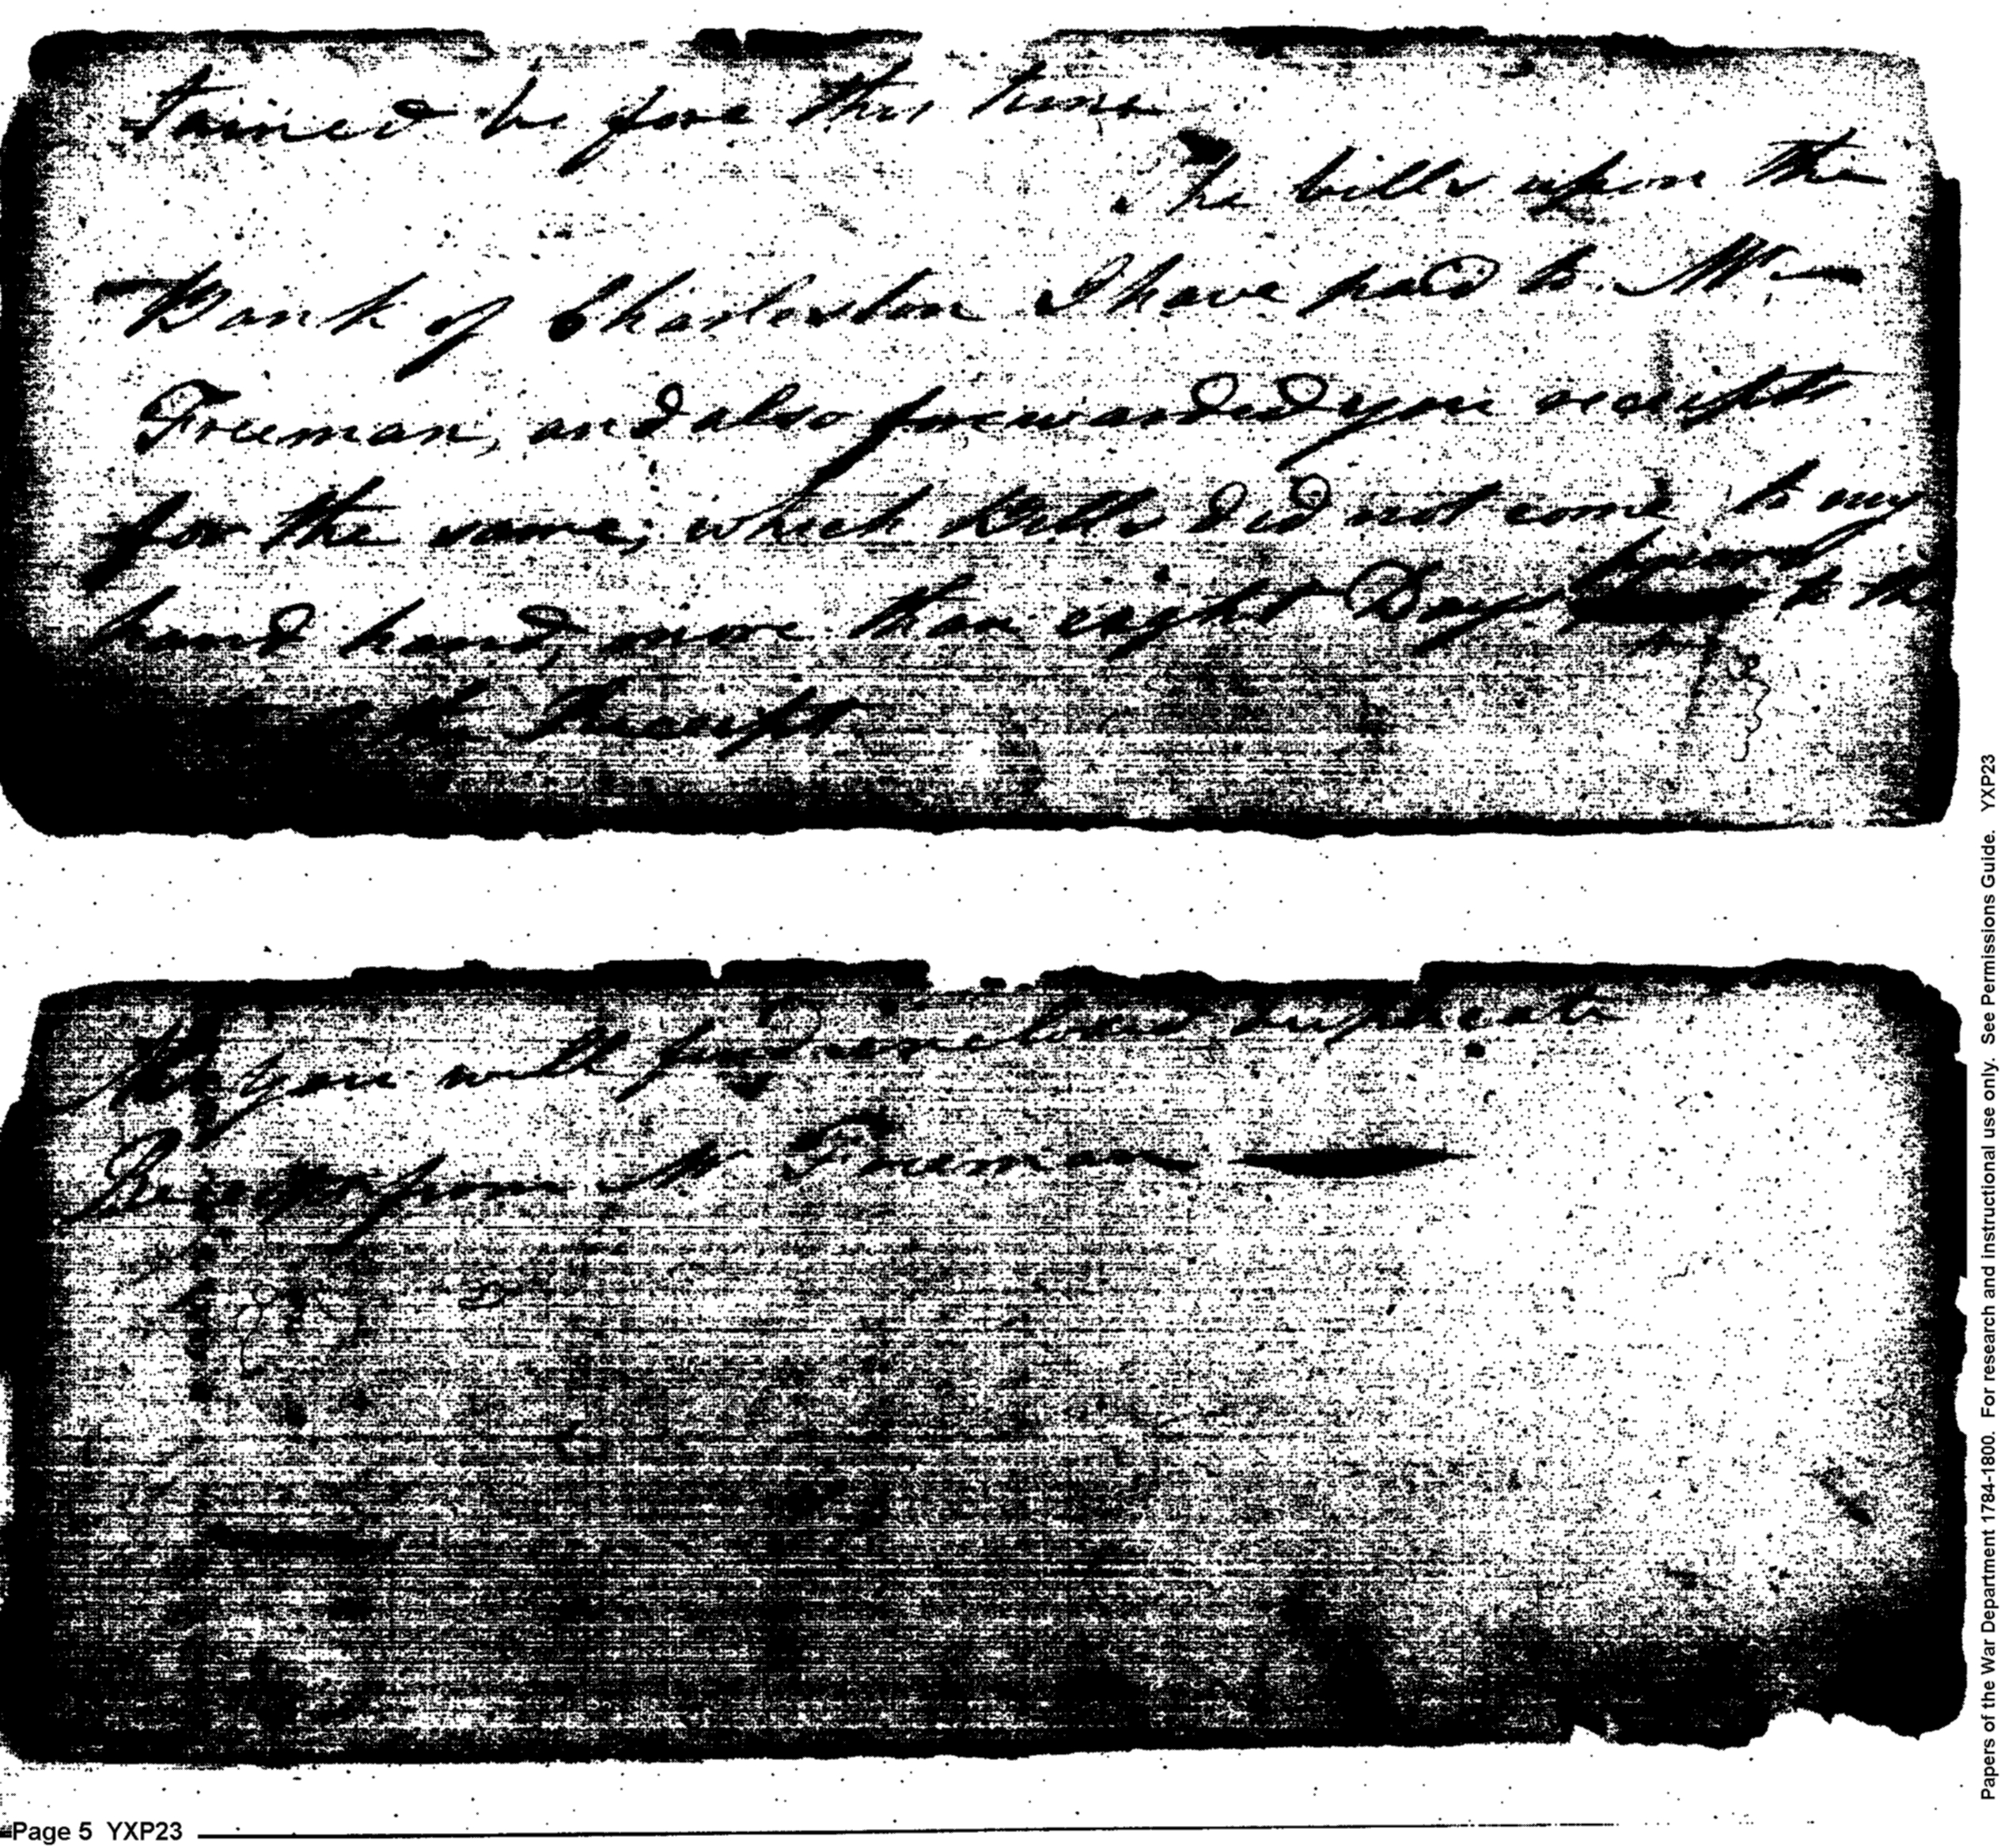 tained before this time
The bills upon the
Bank of Charleston I have paid to Mr
Freeman, and also forewarded you receipts
for the same, which Bills did not come to my
hand hand, more than eight Days to the
the Receipt
you will find enclosed duplicate
from Mr Freeman
Page 5 YXP23
Papers of the War Department 1784-1800. For research and instructional use only. See Permissions Guide. YXP23